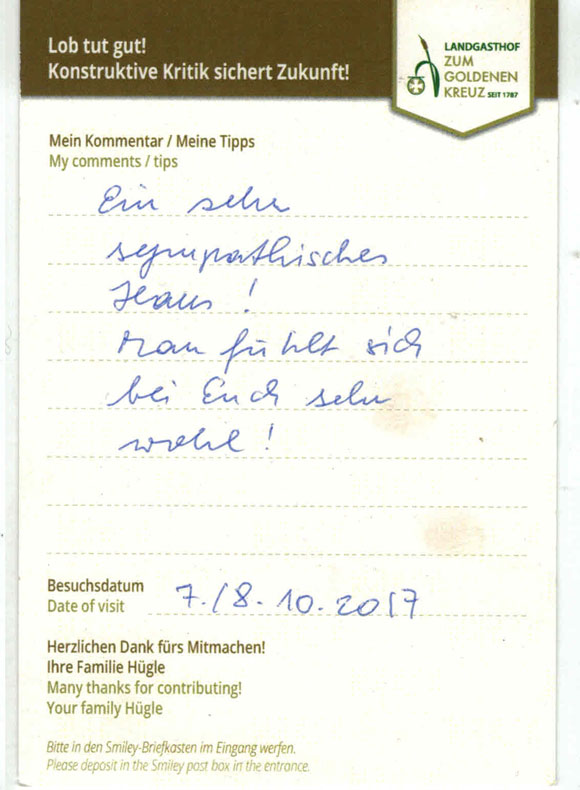 Lob tut gut!
Konstruktive Kritik sichert Zukunft!
LANDGASTHOF
ZUM
GOLDENEN
KREUZ SEIT 1787
Mein Kommentar / Meine Tipps
My comments / tips
Ein sehr
sympathisches
Haus!
Man fühlt sich
bei Euch sehr
wohl!
Besuchsdatum
Date of visit
7./8.10.2017
Herzlichen Dank fürs Mitmachen!
Ihre Familie Hügle
Many thanks for contributing!
Your family Hügle
Bitte in den Smiley-Briefkasten im Eingang werfen.
Please deposit in the Smiley post box in the entrance.